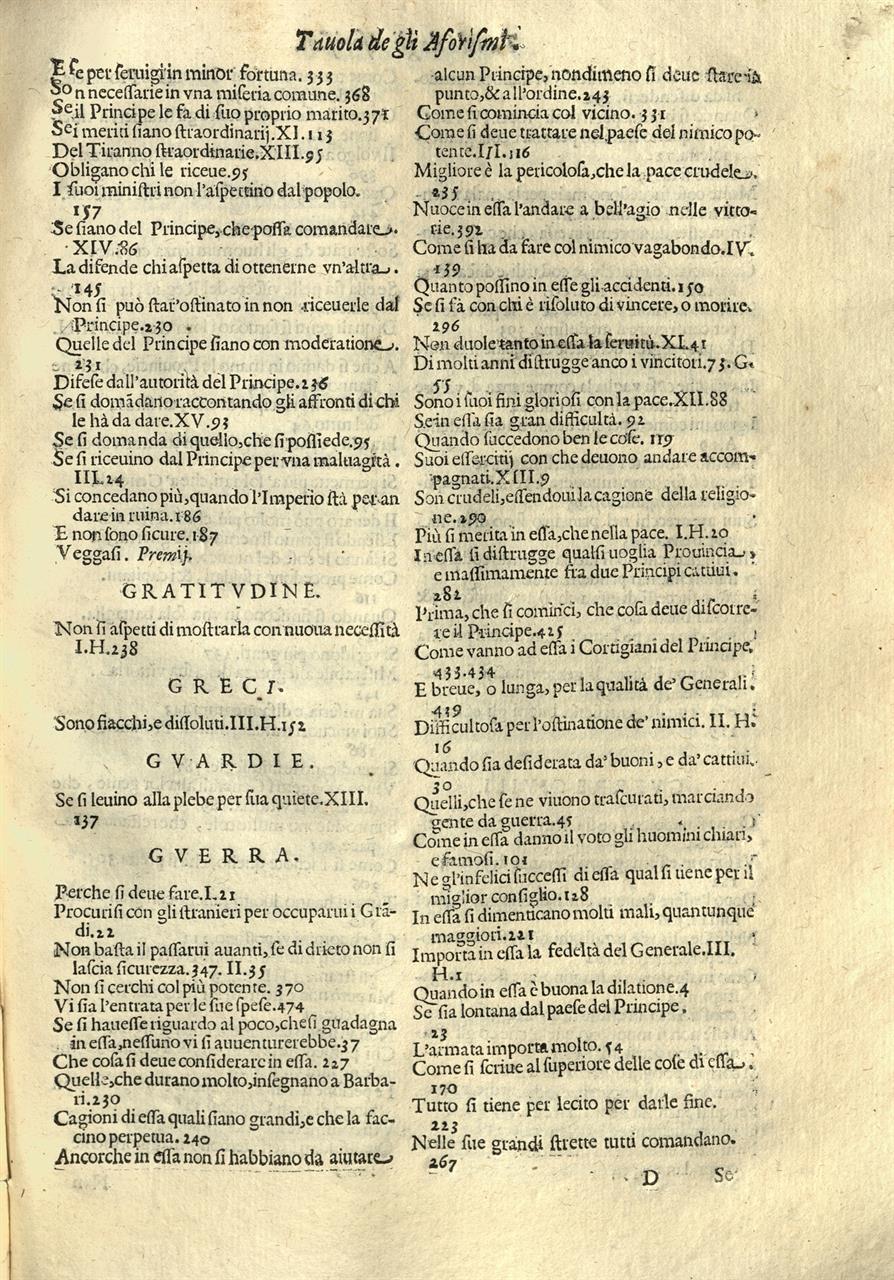 Tauola de gli Aforismi.
E se per seruigi in minor fortuna. 333
Son necessarie in vna miseria comune. 368
Se il Principe le fa di suo proprio marito. 371
Se i meriti siano straordinarij. XI. 113
Del Tiranno straordinarie. XIII. 95
Obligano chi le riceue. 95
I suoi ministri non l'aspettino dal popolo.
157
Se siano del Principe, che possa comandare.
XIV. 86
La difende chi aspetta di ottenerne vn'altra.
145
Non si può star'ostinato in non riceuerle dal
Principe. 230
Quelle del Principe siano con moderatione.
231
Difese dall'autorità del Principe. 236
Se si domādano raccontando gli affronti di chi
le hà da dare. XV. 93
Se si domanda di quello, che si possiede. 95
Se si riceuino dal Principe per vna maluagità.
III. 24
Si concedano più, quando l'Imperio stà per an
dare in ruina. 186
E non sono sicure. 187
Veggasi. Premij.
GRATITVDINE.
Non si aspetti di mostrarla con nuoua necessità
I. H. 238
GRECI.
Sono fiacchi, e dissoluti. III. H. 152
GVARDIE.
Se si leuino alla plebe per sua quiete. XIII.
137
GVERRA.
Perche si deue fare. I. 21
Procurisi con gli stranieri per occuparui i Grā-
di. 22
Non basta il passarui auanti, se di drieto non si
lascia sicurezza. 347. II. 35
Non si cerchi col più potente. 370
Vi sia l'entrata per le sue spese. 474
Se si hauesse riguardo al poco, che si guadagna
in essa, nessuno vi si auuenturerebbe. 37
Che cosa si deue considerare in essa. 227
Quelle, che durano molto, insegnano a Barba-
ri. 230
Cagioni di essa quali siano grandi, e che la fac-
cino perpetua. 240
Ancorche in essa non si habbiano da aiutare
alcun Principe, nondimeno si deue stare in
punto, & all'ordine. 243
Come si comincia col vicino. 331
Come si deue trattare nel paese del nimico po-
tente. III. 116
Migliore è la pericolosa, che la pace crudele.
235
Nuoce in essa l'andare a bell'agio nelle vitto-
rie. 392
Come si ha da fare col nimico vagabondo. IV.
139
Quanto possino in esse gli accidenti. 150
Se si fà con chi è risoluto di vincere, o morire.
296
Non duole tanto in essa la seruitù. XI. 41
Di molti anni distrugge anco i vincitori. 73. G.
55
Sono i suoi fini gloriosi con la pace. XII. 88
Se in essa sia gran difficultà. 92
Quando succedono ben le cose. 119
Suoi essercitij con che deuono andare accom-
pagnati. XIII. 9
Son crudeli, essendoui la cagione della religio-
ne. 290
Più si merita in essa, che nella pace. I. H. 20
In essa si distrugge qualsi uoglia Prouincia,
e massimamente fra due Principi cattiui.
282
Prima, che si cominci, che cosa deue discorre-
re il Principe. 425
Come vanno ad essa i Cortigiani del Principe.
433. 434
E breue, o lunga, per la qualità de' Generali.
439
Difficultosa per l'ostinatione de' nimici. II. H.
16
Quando sia desiderata da' buoni, e da' cattiui.
30
Quelli, che se ne viuono trascurati, marciando
gente da guerra. 45
Come in essa danno il voto gli huomini chiari,
e famosi. 101
Ne gl'infelici successi di essa qual si tiene per il
miglior consiglio. 128
In essa si dimenticano molti mali, quantunque
maggiori. 221
Importa in essa la fedeltà del Generale. III.
H. 1
Quando in essa è buona la dilatione. 4
Se sia lontana dal paese del Principe.
23
L'armata importa molto. 54
Come si scriue al superiore delle cose di essa.
170
Tutto si tiene per lecito per darle fine.
223
Nelle sue grandi strette tutti comandano.
267
D Se